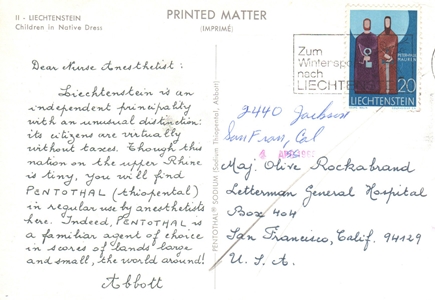 II - LIECHTENSTEIN
Children in Native Dress
PRINTED MATTER
(IMPRIMÉ)
Dear Nurse Anesthetist:
Liechtenstein is an
independent principality
with an unusual distinction:
its citizens are virtually
without taxes. Though this
nation on the upper Rhine
is tiny, you will find
PENTOTHAL (thiopental)
in regular use by anesthetists
here. Indeed, PENTOTHAL is
a familiar agent of choice
in scores of lands large
and small, the world around!
Abbott
PENTOTHAL® SODIUM (Sodium Thiopental, Abbott)
Zum
Wintersp
nach
LIECHTE
20
LIECHTENSTEIN
2440 Jackson
San Fran, Cal
Maj. Olive Rockabrand
Letterman General Hospital
Box 404
San Francisco, Calif. 94129
U.S.A.